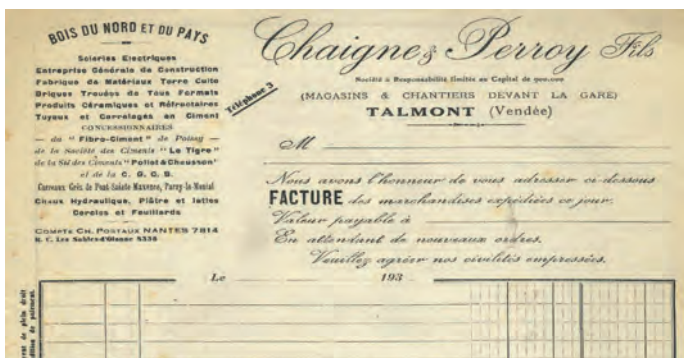 BOIS DU NORD ET DU PAYS
Scieries Electriques
Entreprise Générale de Construction
Fabrique de Matériaux Terre Cuite
Briques Trouées de Tous Formats
Produits Céramiques et Réfractaires
Tuyaux et Carrelages en Ciment
CONCESSIONNAIRES
— du "Fibro-Ciment" de Poissy —
de la Société des Ciments "Le Tigre"
de la Sté des Ciments "Pollet & Chausson"
et de la C. G. C. B.
Carreaux Grès de Pont-Sainte Maxence, Paray-le-Monial
Chaux Hydraulique, Plâtre et lattes
Cercles et Feuillards
COMPTE CH. POSTAUX NANTES 7814
R. C. Les Sables-d'Olonne 8336
Téléphone 3
Chaigne & Perroy Fils
Société à Responsabilité limitée au Capital de 900.000
(MAGASINS & CHANTIERS DEVANT LA GARE)
TALMONT (Vendée)
M
Nous avons l'honneur de vous adresser ci-dessous
FACTURE des marchandises expédiées ce jour.
Valeur payable à
En attendant de nouveaux ordres,
Veuillez agréer nos civilités empressées.
Le 193
ent de plein droit
dition de paiement.